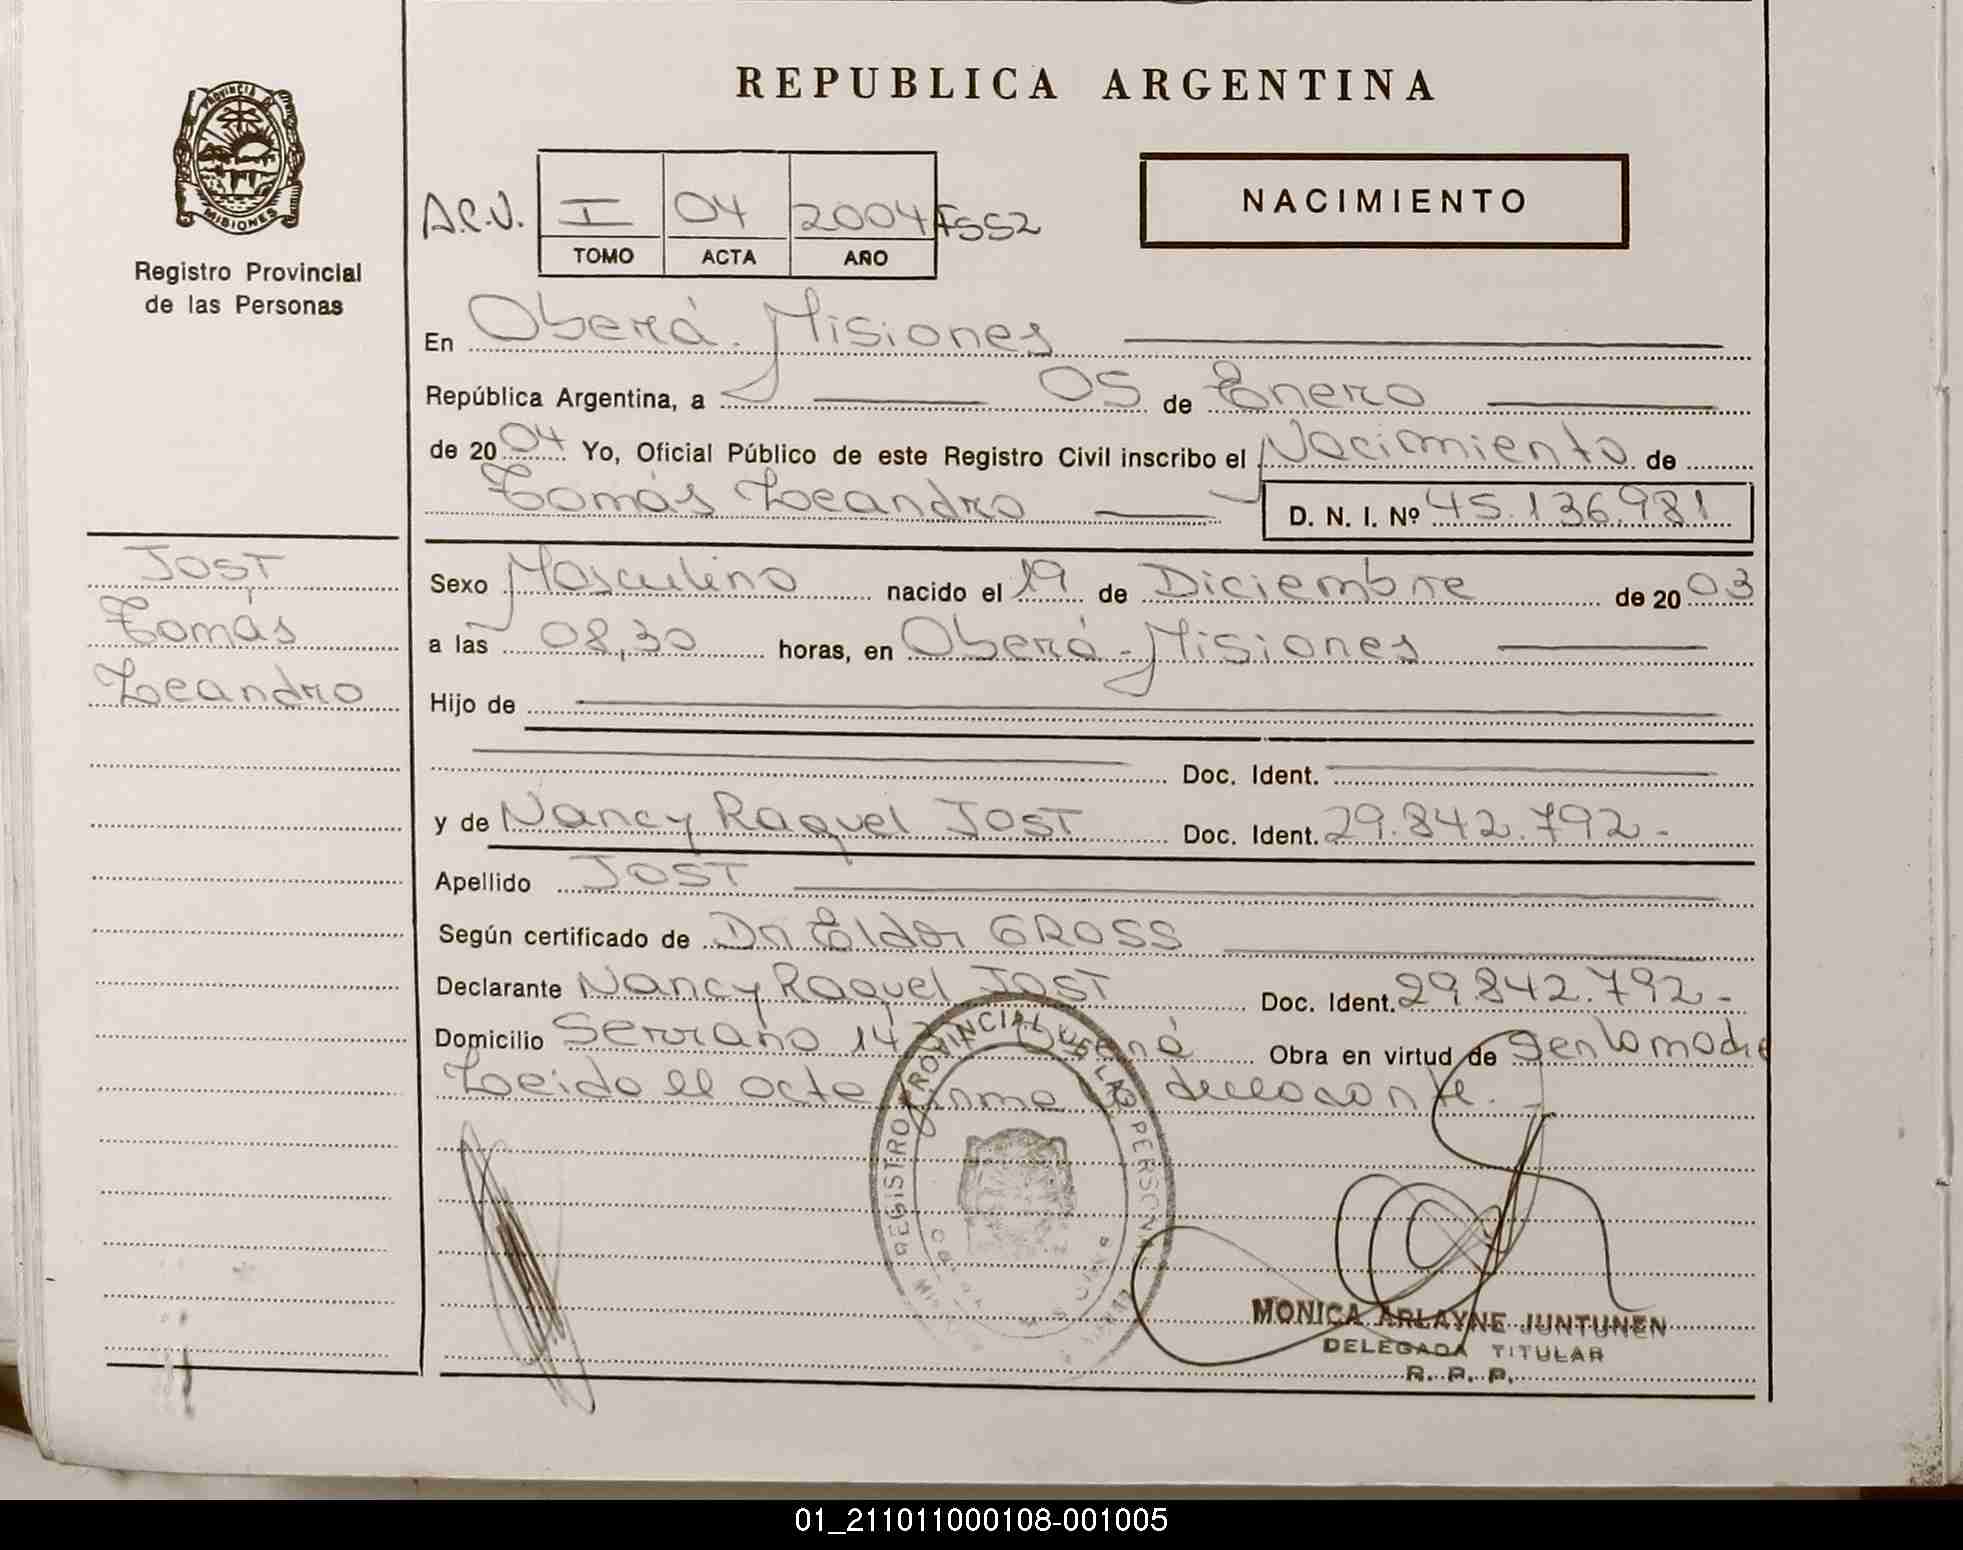 REPUBLICA ARGENTINA
PROVINCIA DE
MISIONES
Registro Provincial
de las Personas
A.C.V. I 04 2004 F552
TOMO ACTA AÑO
NACIMIENTO
En Oberá. Misiones
República Argentina, a 05 de Enero
de 2004 Yo, Oficial Público de este Registro Civil inscribo el Nacimiento de
Tomás Leandro D. N. I. Nº 45.136.981
JOST
Tomás
Leandro
Sexo Masculino nacido el 19 de Diciembre de 2003
a las 08,30 horas, en Oberá - Misiones
Hijo de
Doc. Ident.
y de Nancy Raquel JOST Doc. Ident. 29.842.792.-
Apellido JOST
Según certificado de Dr. Eldor GROSS
Declarante Nancy Raquel JOST Doc. Ident. 29.842.792.-
Domicilio Serrano Oberá Obra en virtud de ser la madre
Leido el acta firma la declarante.-
REGISTRO PROVINCIAL DE LAS PERSONAS
MONICA ARLAYNE JUNTUNEN
DELEGADA TITULAR
R. P. P.
01_211011000108-001005